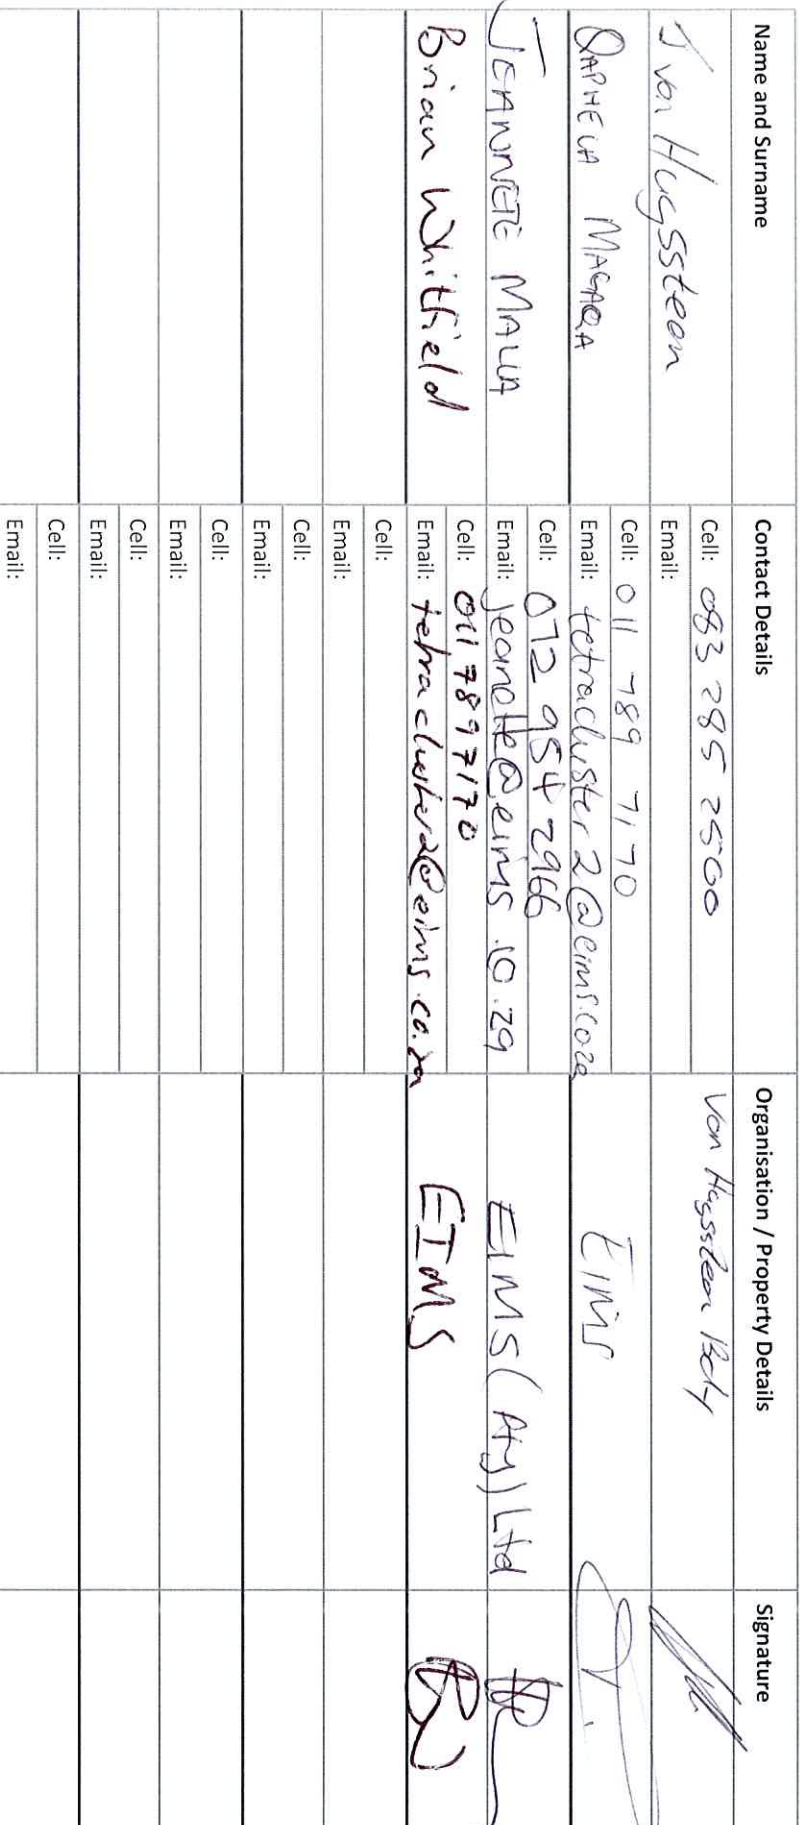 Name and Surname Contact Details Organisation / Property Details Signature
J von Hugssteen Cell: 083 285 2500 Von Hugssteen Bdy
Email:
QAPHELA MAGAQA Cell: 011 789 7170 EIMS
Email: tetracluster2@eims.co.za
JEANNETE MALLA Cell: 072 954 2966 EIMS (Pty) Ltd
Email: jeanette@eims.co.za
Brian Whitfield Cell: 011 789 7170 EIMS
Email: tetracluster2@eims.co.za
Cell:
Email:
Cell:
Email:
Cell:
Email:
Cell:
Email:
Cell:
Email: